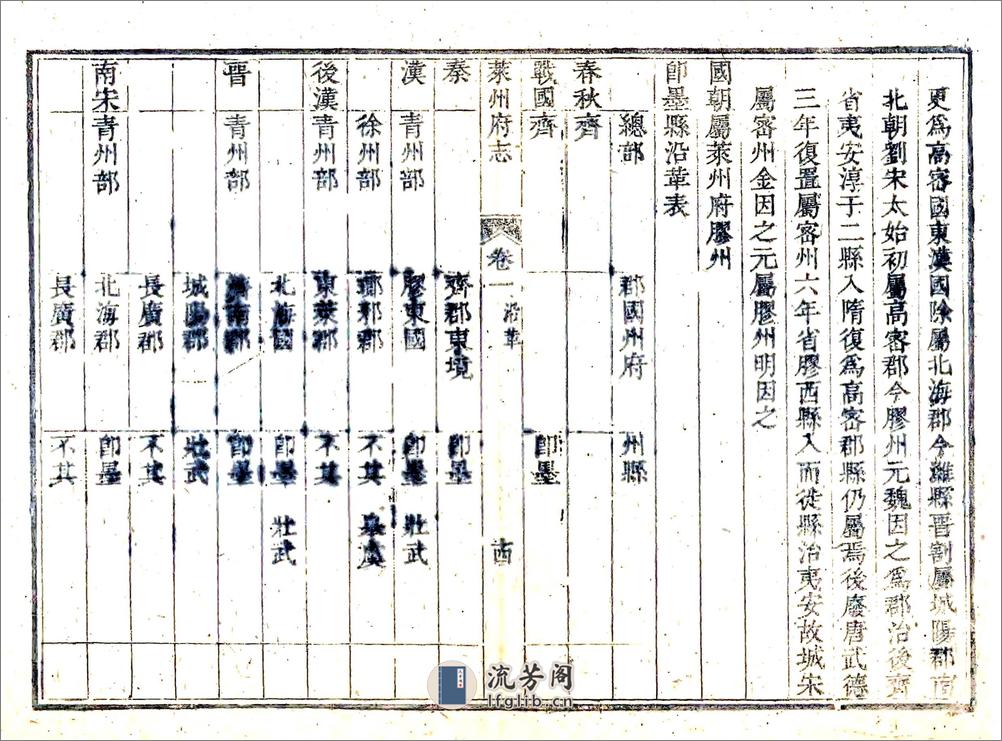 更爲高密國東漢國除屬北海郡今濰縣晋割屬城陽郡南
北朝劉宋太始初屬高密郡今膠州元魏因之爲郡治後齊
省夷安淳于二縣入隋復爲高密郡縣仍屬焉後廢唐武德
三年復置屬密州六年省膠西縣入而徙縣治夷安故城宋
屬密州金因之元屬膠州明因之
國朝屬萊州府膠州
卽墨縣沿革表
總部 郡國州府 州縣
春秋齊
戰國齊 卽墨
萊州府志 卷一 沿革 酉
秦 齊郡東境 卽墨
漢 青州部 膠東國 卽墨 壯武
徐州部 瑯邪郡 不其 皋虞
後漢青州部 東萊郡 不其
北海國 卽墨 壯武
晋 青州部 濟南郡 卽墨
城陽郡 壯武
長廣郡 不其
南宋青州部 北海郡 卽墨
長廣郡 不其
流芳阁
lfglib.cn